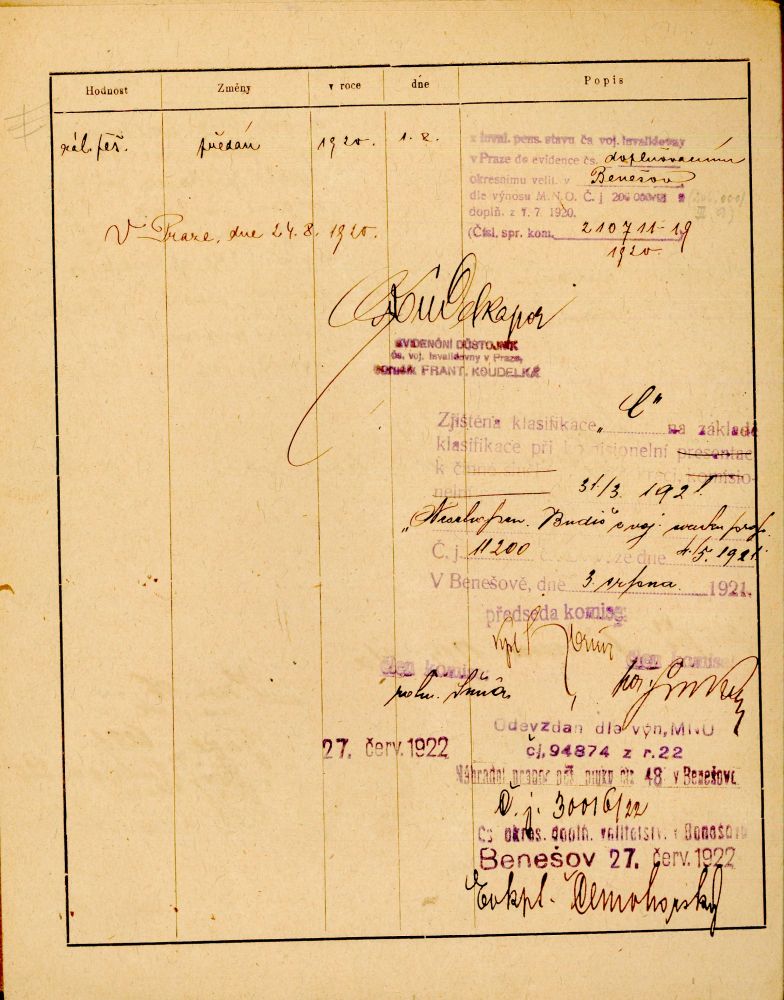 Hodnost Změny v roce dne Popis
předán 1920. 1. 8. z inval. pens. stavu čs voj. invalidovny
v Praze do evidence čs. doplňovacímu
okresnímu velit. v Benešov
dle výnosu M.N.O. Č. j
doplň. z 1. 7. 1920.
(Čísl. spr. kom. 210711-19
1920.
V Praze, dne 24. 8. 1920.
EVIDENČNÍ DŮSTOJNÍK
čs. voj. invalidovny v Praze,
FRANT. KOUDELKA
Zjištěna klasifikace „C" na základě
klasifikace při komisionelní presentac
k
31./3. 1921.
Č. j. 11200 ze dne 4./5. 1921
V Benešově, dne 3. srpna 1921.
předseda komise:
člen komise člen komise
Odevzdán dle výn, MNO
27. červ. 1922 čj, 94874 z r. 22
Náhradní prapor pěš. pluku čís 48 v Benešově
Č. j. 30016/22
Čs okres. doplň. velitelství. v Benešově
Benešov 27. červ. 1922